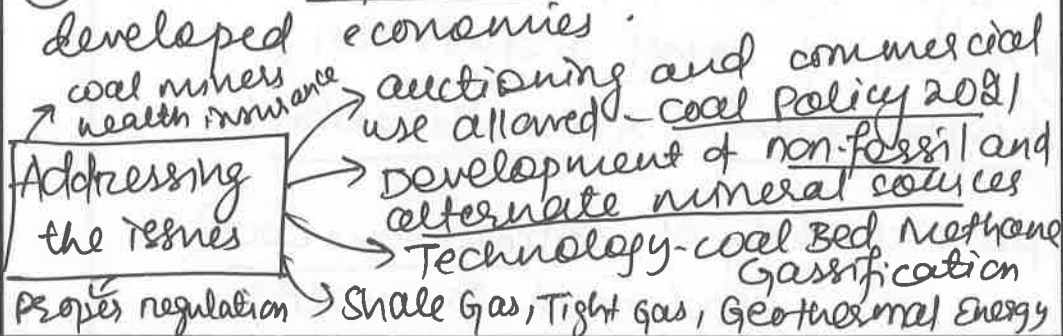 developed economies.
coal miners
health insurance
auctioning and commercial
use allowed - coal Policy 2021
Addressing
the issues
Development of non-fossil and
alternate mineral sources
Technology - coal Bed Methane
Gassification
Proper regulation
Shale Gas, Tight Gas, Geothermal Energy